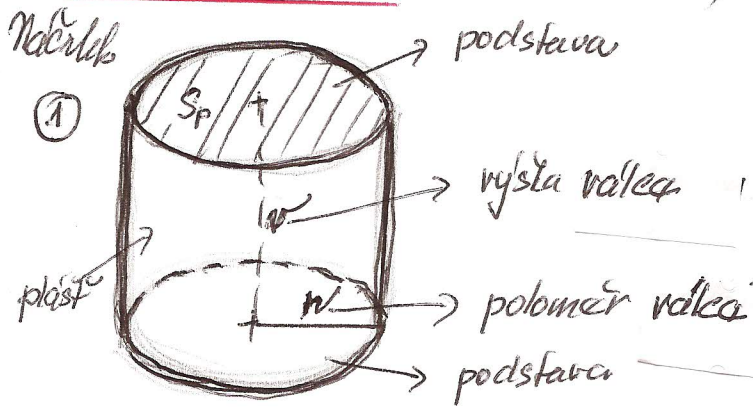 Náčrtek
podstava
1
Sp
v
výška válca
plášť
r
poloměr válca
podstava